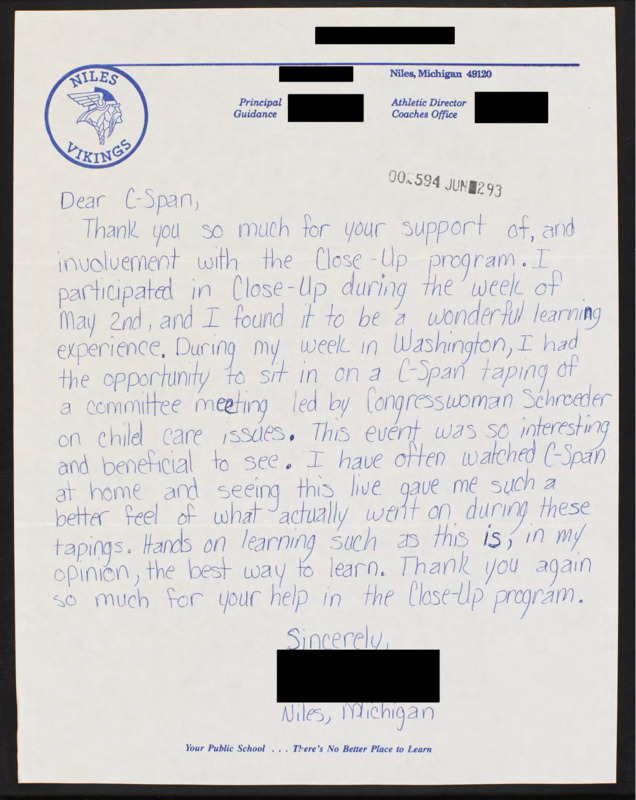 Niles, Michigan 49120
NILES
VIKINGS
Principal
Guidance
Athletic Director
Coaches Office
594 JUN 293
Dear C-Span,
Thank you so much for your support of, and
involvement with the Close-Up program. I
participated in Close-Up during the week of
May 2nd, and I found it to be a wonderful learning
experience. During my week in Washington, I had
the opportunity to sit in on a C-Span taping of
a committee meeting led by Congresswoman Schroeder
on child care issues. This event was so interesting
and beneficial to see. I have often watched C-Span
at home and seeing this live gave me such a
better feel of what actually went on during these
tapings. Hands on learning such as this is, in my
opinion, the best way to learn. Thank you again
so much for your help in the Close-Up program.
Sincerely,
Niles, Michigan
Your Public School . . . There's No Better Place to Learn